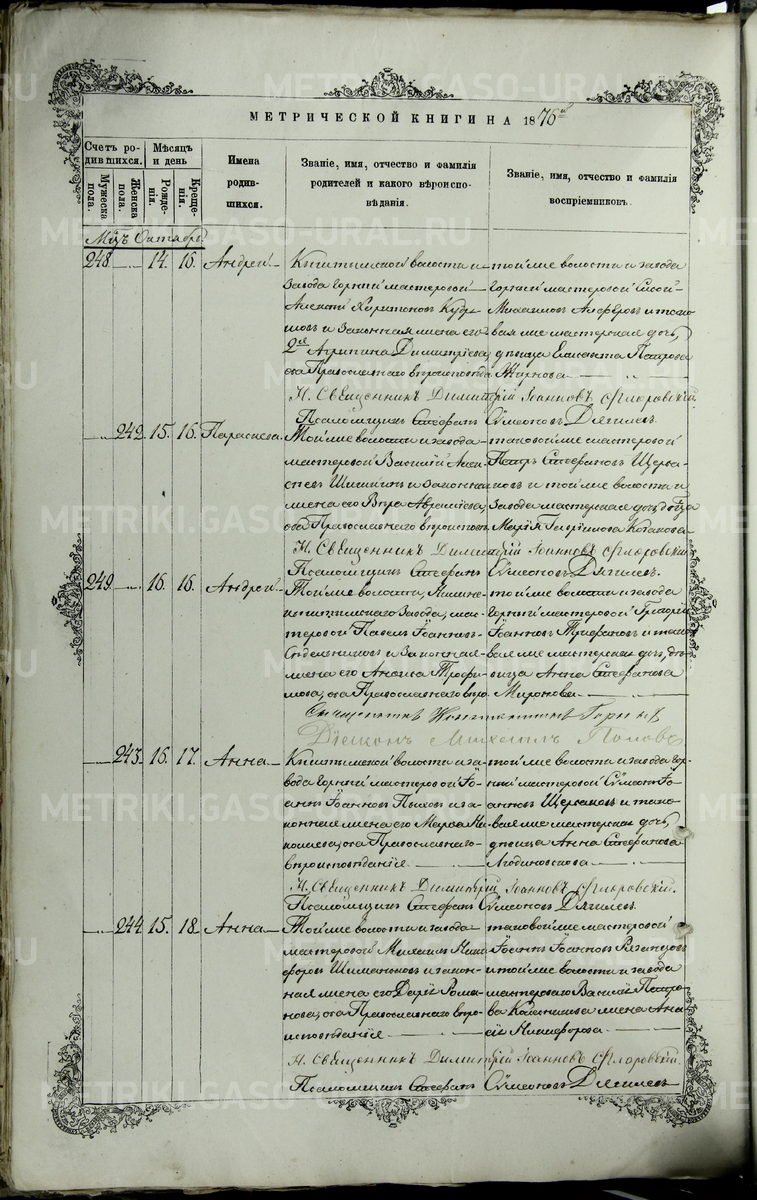 МЕТРИЧЕСКОЙ КНИГИ НА 1876й
Счетъ родившихся.
Мѣсяцъ и день
Имена родившихся.
Званіе, имя, отчество и фамилія родителей и какого вѣроисповѣданія.
Званіе, имя, отчество и фамилія воспріемниковъ.
Мужеска пола.
Женска пола.
Рожденія.
Крещенія.
Мцъ Октябрь
248. 14. 16. Андрей
Кыштымской волости и
завода горный мастеровой
Алексѣй Харитоновъ
и законная жена его
2го Агрипина Димитріева,
оба Православнаго вѣроисповѣд.
той же волости и завода
горный мастеровой Сысой
Михаиловъ Алферовъ и тако
вая же мастерская дочь,
дѣвица Елисавета Петрова
Жирнова
Н. Священникъ Димитрій Іоанновъ Флоровскій.
Псаломщикъ Стефанъ Сѵмеоновъ Дягилевъ.
242. 15. 16. Параскева.
Той же волости и завода
мастеровой Василій Алек-
сѣевъ Шишкинъ и законная
жена его Вѣра Авраміева,
оба Православнаго вѣроисповѣд.
таковой же мастеровой
Петръ Стефановъ Щерба-
ковъ и той же волости и
завода мастерская дочь дѣвица
Марія Георгіева
Н. Священникъ Димитрій Іоанновъ Флоровскій
Псаломщикъ Стефанъ Сѵмеоновъ Дягилевъ.
249. 16. 16. Андрей
Той же волости, Нижне-
кыштымскаго завода, мас-
теровой Павелъ Іоанновъ
и законная
жена его Анисья Трофи-
мова, оба Православнаго вѣро
той же волости и завода
горный мастеровой Григорій
Іоанновъ Трифановъ и тако-
вая же мастерская дочь, дѣ-
вица Анна Стефанова
Миронова
Священникъ Константинъ
Діаконъ Михаилъ Поповъ
243. 16. 17. Анна
Кыштымской волости и за-
вода горный мастеровой Іо-
аннъ Іоанновъ Пыховъ и за-
конная жена его Марѳа Ни-
колаева, оба Православнаго
вѣроисповѣданія
той же волости и завода гор-
ный мастеровой Сѵмеонъ Іо-
анновъ Щербаковъ и тако-
вая же мастерская дочь,
дѣвица Анна Стефанова
Н. Священникъ Димитрій Іоанновъ Флоровскій.
Псаломщикъ Стефанъ Сѵмеоновъ Дягилевъ.
244. 15. 18. Анна
Той же волости и завода
мастеровой Михаилъ Ники-
форовъ и закон-
ная жена его Дарія Рома-
нова, оба Православнаго вѣро-
исповѣданія
таковой же мастеровой
Іоаннъ Іоанновъ
и той же волости и завода
мастероваго Василія Петро-
ва жена Ана-
Никифорова
Н. Священникъ Димитрій Іоанновъ Флоровскій.
Псаломщикъ Стефанъ Сѵмеоновъ Дягилевъ
METRIKI.GASO-URAL.RU